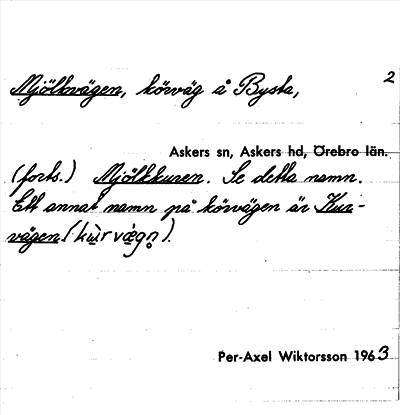 2
Mjölkvägen, körväg å Bysta,
Askers sn, Askers hd, Örebro län.
(forts.) Mjölkkuren. Se detta namn.
Ett annat namn på körvägen är Kur-
vägen (kùr væ̀gn̥).
Per-Axel Wiktorsson 1963